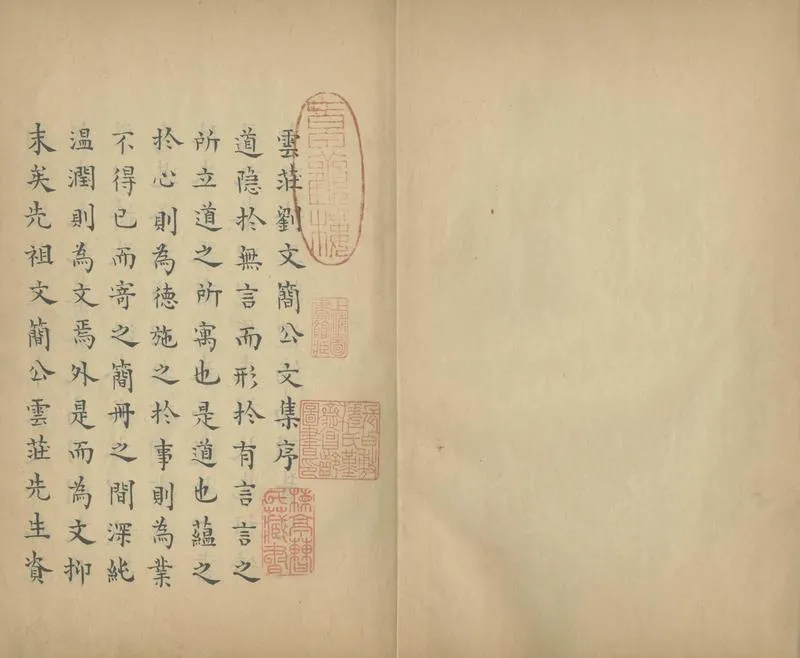 雲莊劉文簡公文集序
道隐於無言而形於有言言之
所立道之所寓也是道也蘊之
於心則為德施之於事則為業
不得已而寄之簡冊之間深純
温潤則為文焉外是而為文抑
末矣先祖文簡公雲莊先生資